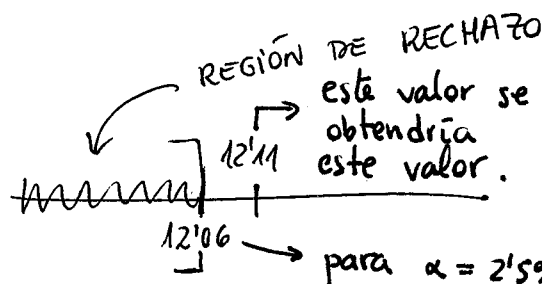 REGIÓN DE RECHAZO
este valor se
obtendría
12'11 este valor.
12'06
para α = 2'5%